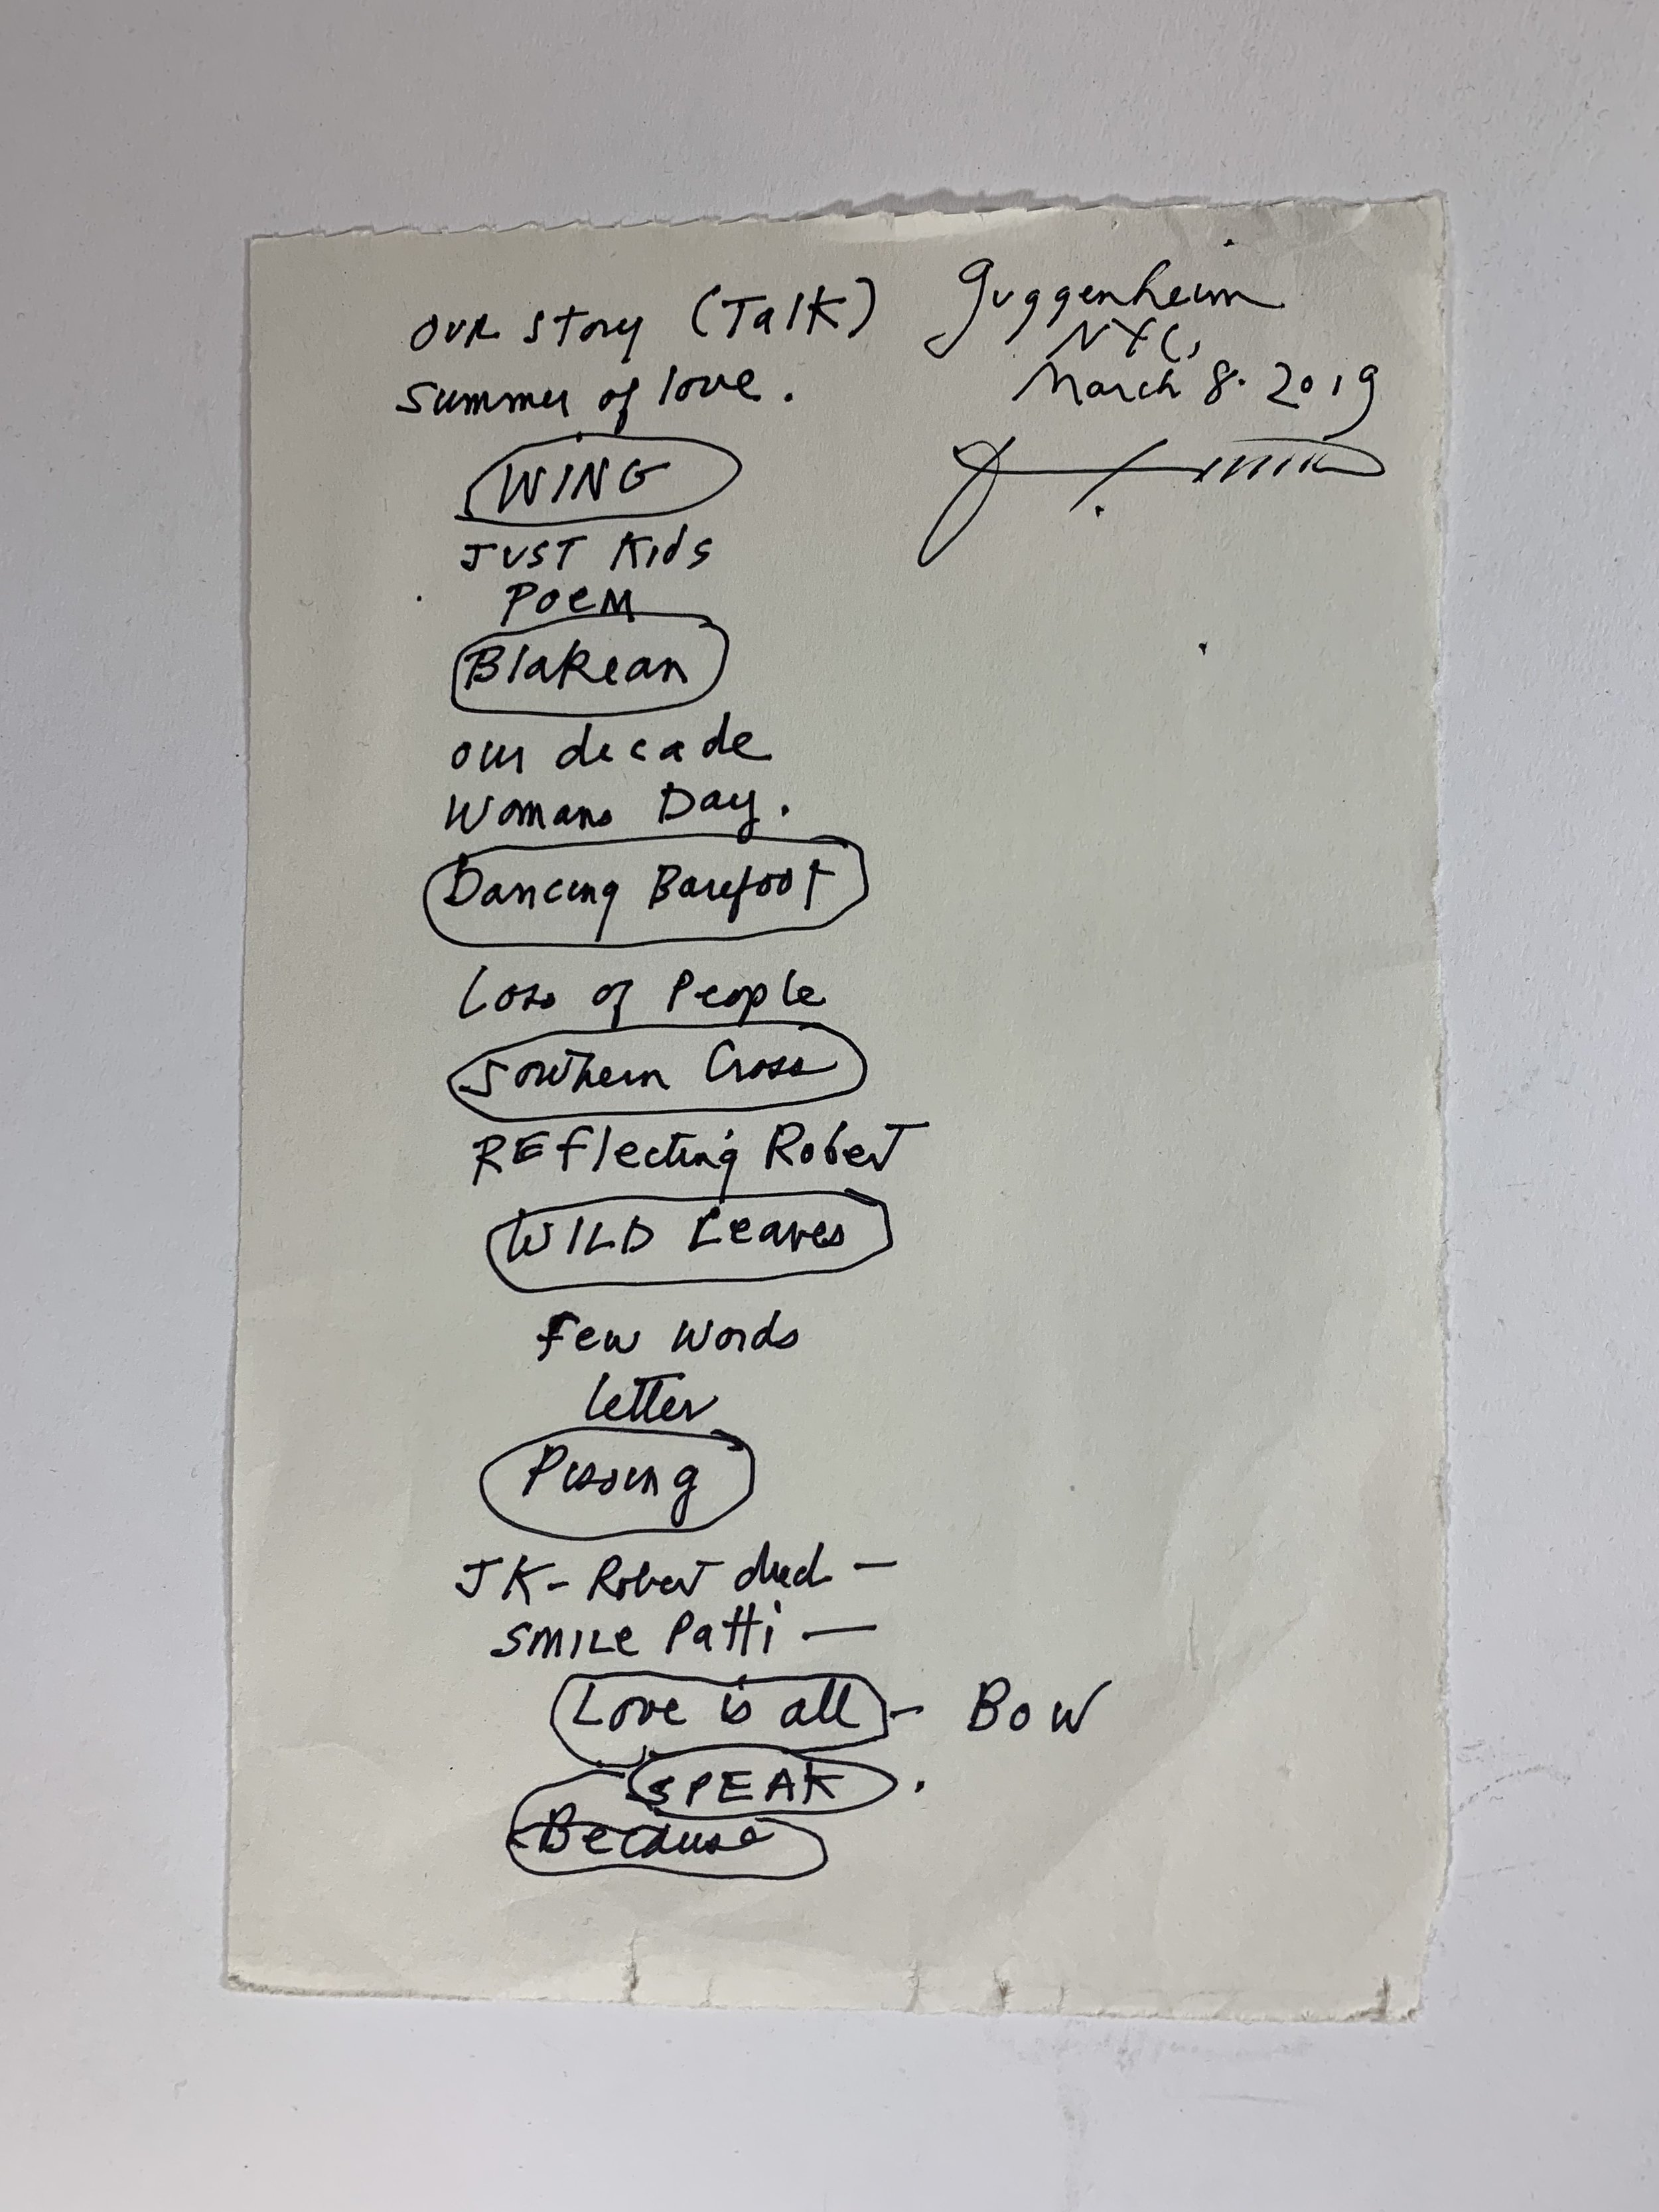 OUR Story (Talk)
Summer of love.
Guggenheim
NYC,
March 8. 2019
WING
JUST Kids
POEM
Blakean
our decade
Womans Day.
Dancing Barefoot
Loss of People
Southern Cross
REflecting Robert
WILD Leaves
Few Words
letter
Pissing
JK- Robert died —
SMILE Patti —
Love is all - BOW
SPEAK.
Because